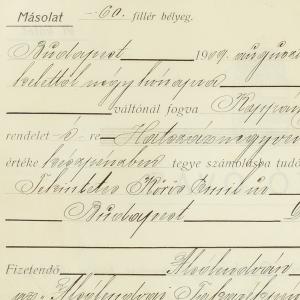 Másolat -60. fillér bélyeg.
Budapest 1909. augusz
kelettől négy hónapra
váltónál fogva
rendelet-é-re Hatszáznegyven
értéke készpénzben tegye számolásba tudó
Tekintetes Kőrös Emil úr
Budapest
Fizetendő Alsólendván